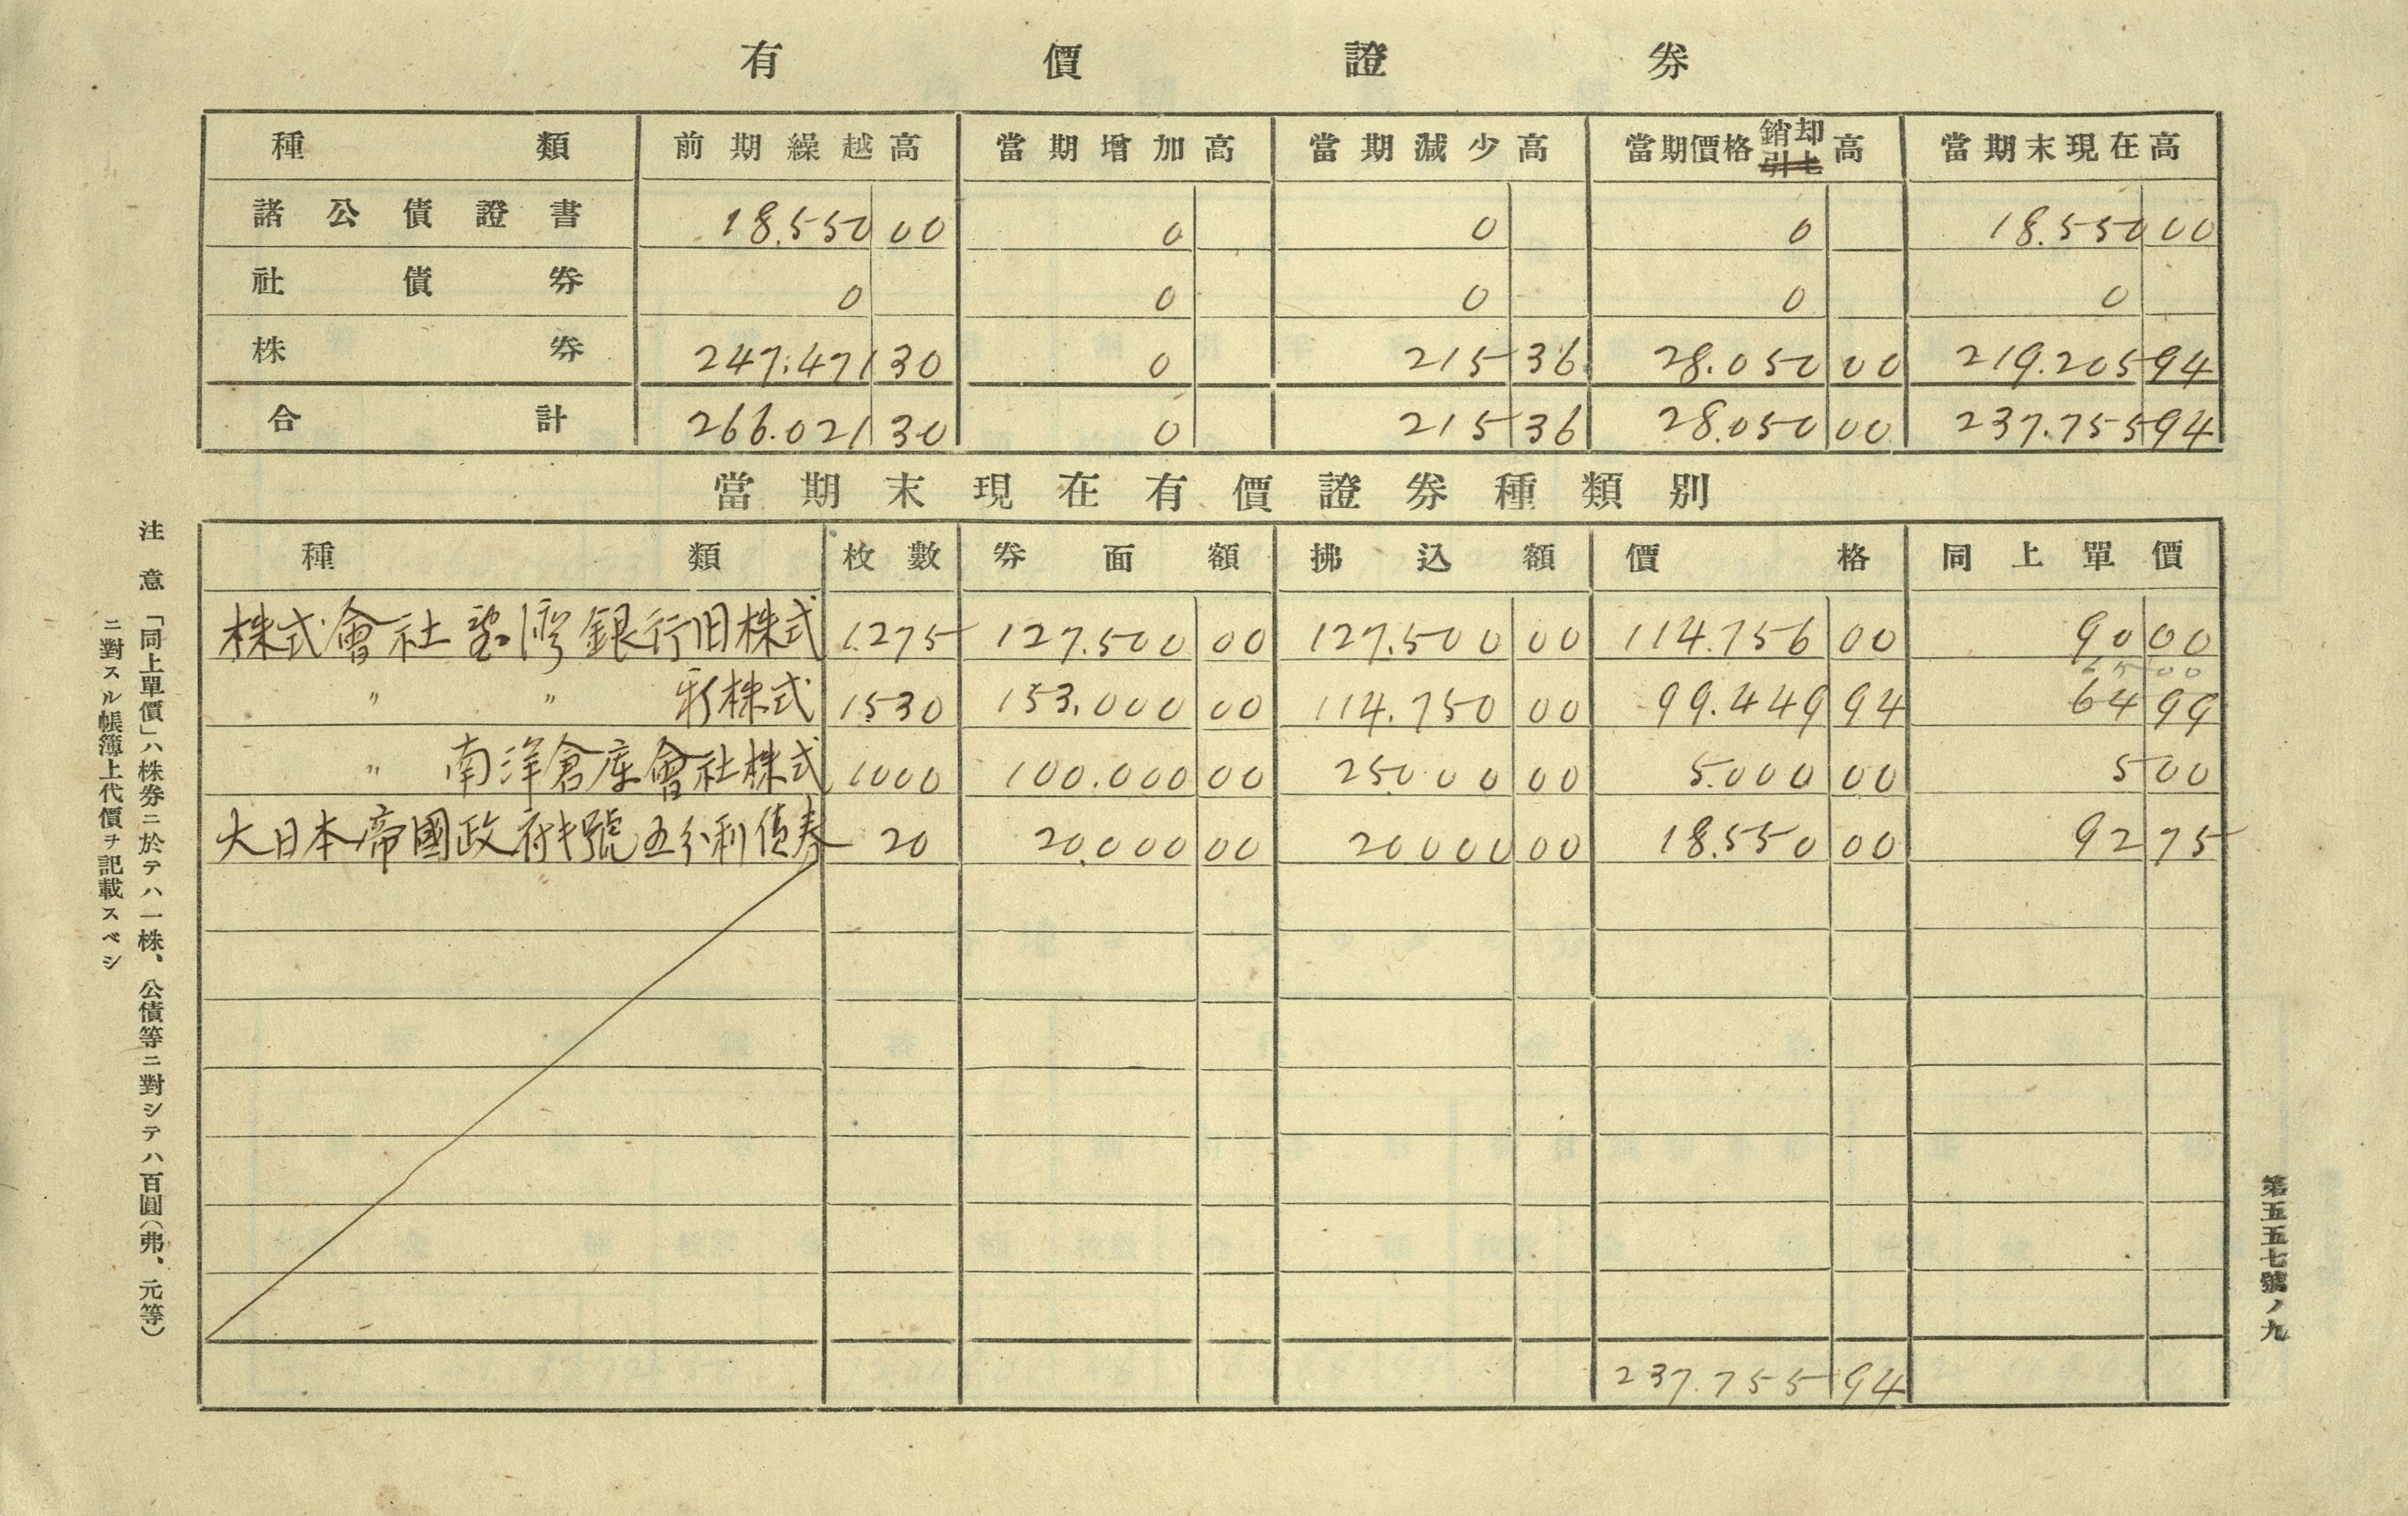 有價證券
種類 前期繰越高 當期增加高 當期減少高 當期價格銷却引上高 當期末現在高
諸公債證書 18.550 00 0 0 0 18.550 00
社債券 0 0 0 0 0
株券 247.471 30 0 215 36 28.050 00 219.205 94
合計 266.021 30 0 215 36 28.050 00 237.755 94
當期末現在有價證券種類別
種類 枚數 券面額 拂込額 價格 同上單價
株式會社臺灣銀行旧株式 1.275 127.500 00 127.500 00 114.756 00 90 00
65 00
〃 〃 新株式 1530 153.000 00 114.750 00 99.449 94 64 99
〃 南洋倉庫會社株式 1000 100.000 00 25000 00 5.000 00 5 00
大日本帝國政府 號五分利債券 20 20.000 00 20000 00 18.550 00 92 75
237.755 94
注意 「同上單價」ハ株券ニ於テハ一株、公債等ニ對シテハ百圓(弗、元等)
ニ對スル帳簿上代價ヲ記載スベシ
第五五七號ノ九